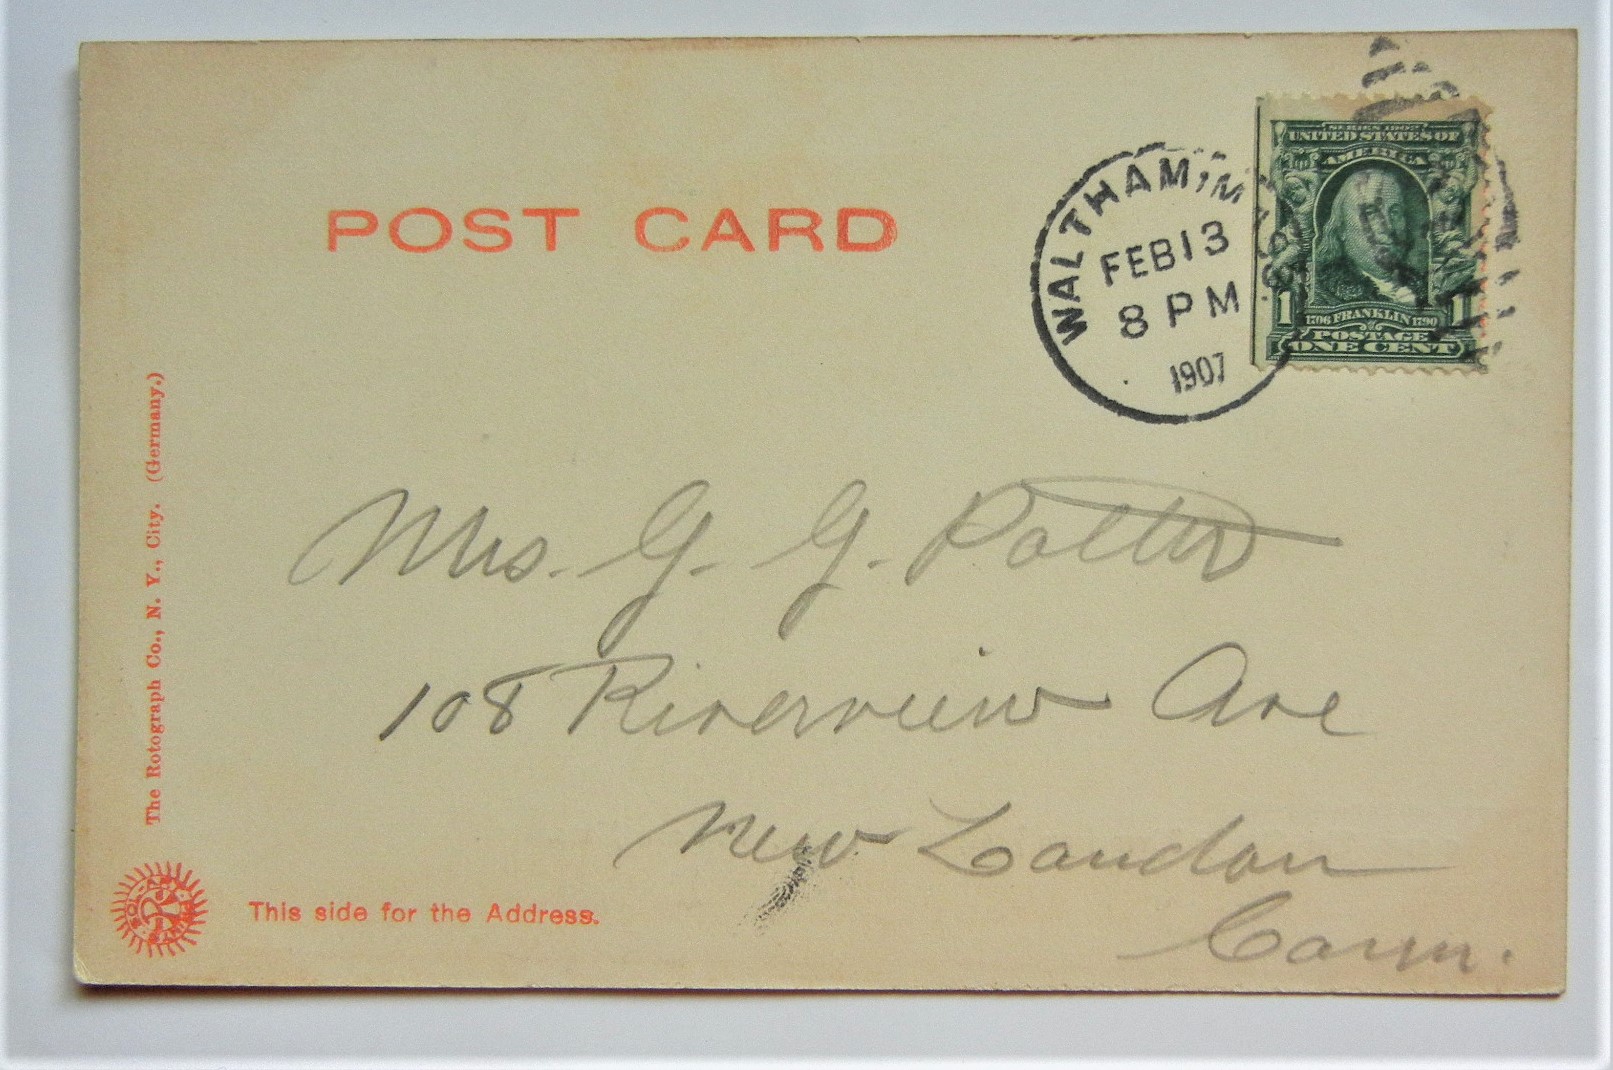 POST CARD
WALTHAM, MASS.
FEB 13
8 PM
1907
SERIES 1902
UNITED STATES OF
AMERICA
1 1
1706 FRANKLIN 1790
POSTAGE
ONE CENT
Mrs. G. G. Potter
108 Riverview Ave
New London
Conn.
The Rotograph Co., N. Y., City. (Germany.)
This side for the Address.